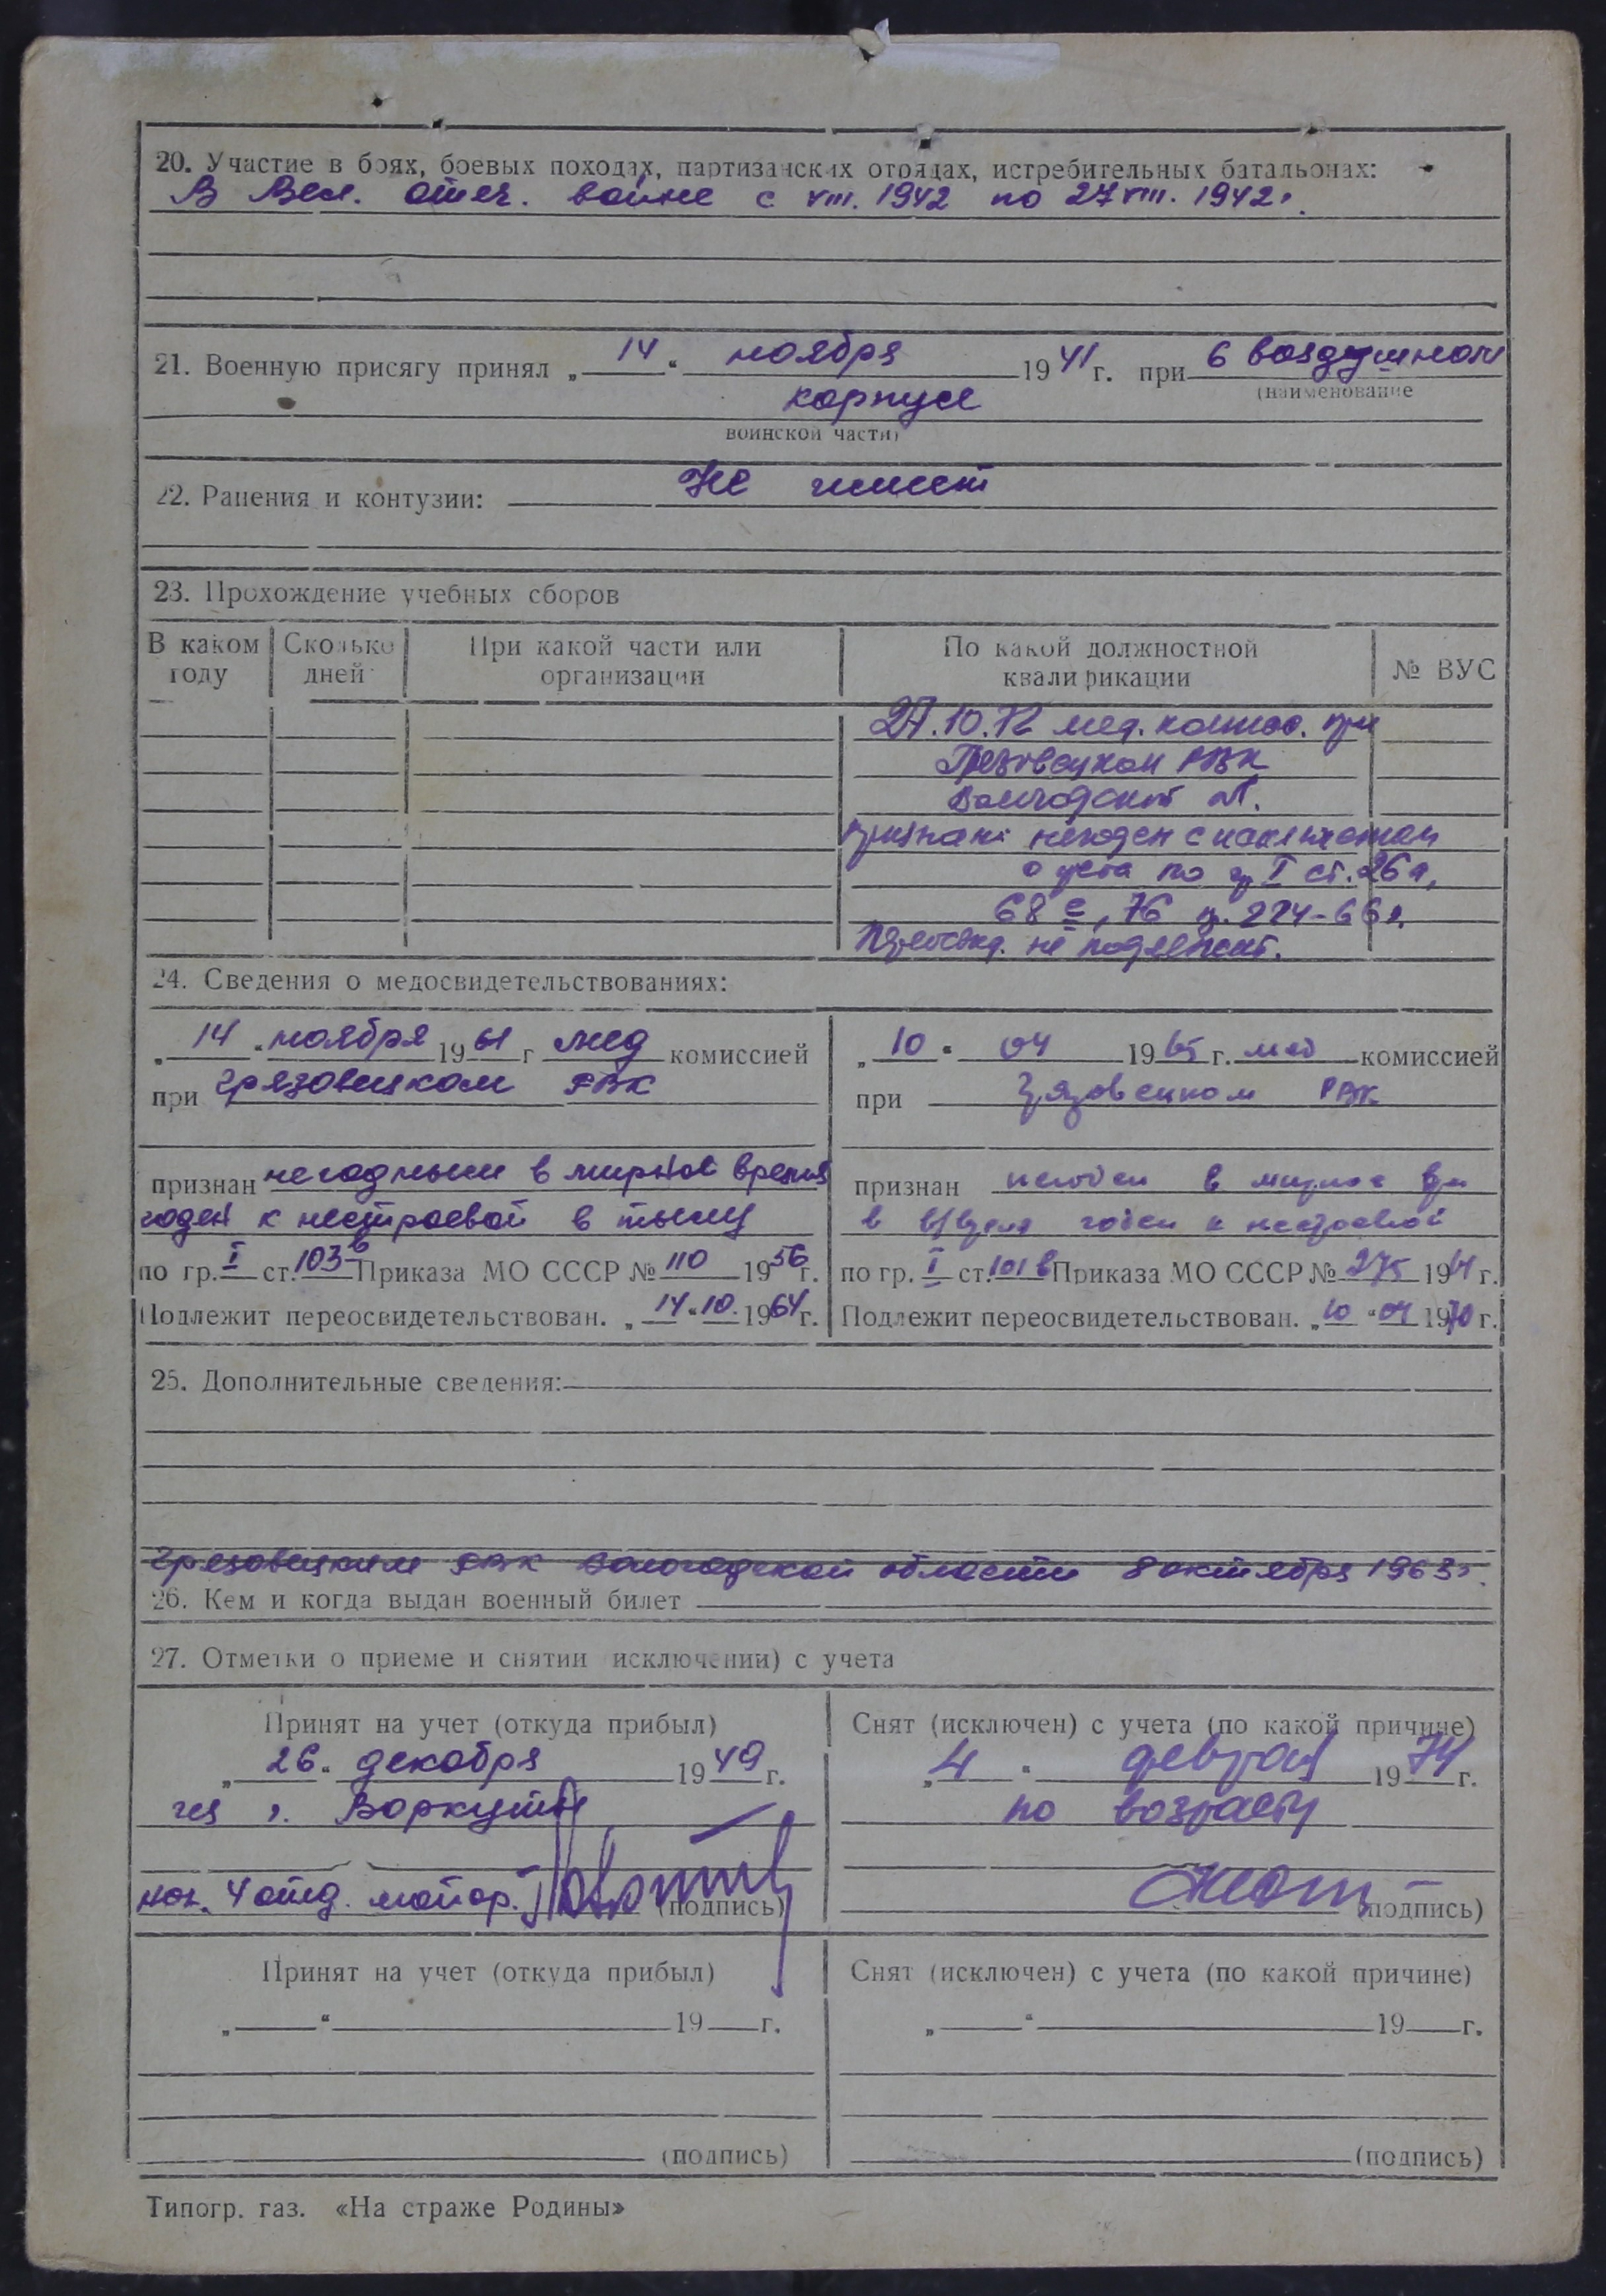 20. Участие в боях, боевых походах, партизанских отрядах, истребительных батальонах:
В Вел. отеч. войне с VIII. 1942 по 27 VIII. 1942г.
21. Военную присягу принял „ 14 “ ноября 19 41 г. при 6 воздушном
(наименование
корпусе
воинской части)
22. Ранения и контузии: Не имеет
23. Прохождение учебных сборов
В каком году
Сколько дней
При какой части или организации
По какой должностной квалификации
№ ВУС
27.10.72 мед. комисс. при
Грязовецком РВК
Вологодской об.
признан: негоден с исключением
с учета по гр I ст. 26а,
68 е, 76 пр. 224-66г.
Переосвид. не подлежит.
24. Сведения о медосвидетельствованиях:
„ 14 “ ноября 19 61 г мед комиссией
при Грязовецком РВК
признан негодным в мирное время
годен к нестроевой в тылу
по гр. I ст. 103в Приказа МО СССР № 110 19 56 г.
Подлежит переосвидетельствован. „ 14 “ 10. 19 64 г.
„ 10 “ 04 19 65 г. мед комиссией
при Грязовецком РВК
признан негоден в мирное вр
в в/время годен к нестроевой
по гр. I ст. 101 в Приказа МО СССР № 275 19 64 г.
Подлежит переосвидетельствован. „ 10 “ 04 19 70 г.
25. Дополнительные сведения:
Грязовецким РВК Вологодской области 8 октября 1963г.
26. Кем и когда выдан военный билет
27. Отметки о приеме и снятии исключении) с учета
Принят на учет (откуда прибыл)
„ 26 “ декабря 19 49 г.
из г. Воркуты
нач. 4 отд. майор.
(подпись)
Снят (исключен) с учета (по какой причине)
„ 4 “ февраля 19 74 г.
по возрасту
(подпись)
Принят на учет (откуда прибыл)
„ “ 19 г.
(подпись)
Снят (исключен) с учета (по какой причине)
„ “ 19 г.
(подпись)
Типогр. газ. «На страже Родины»